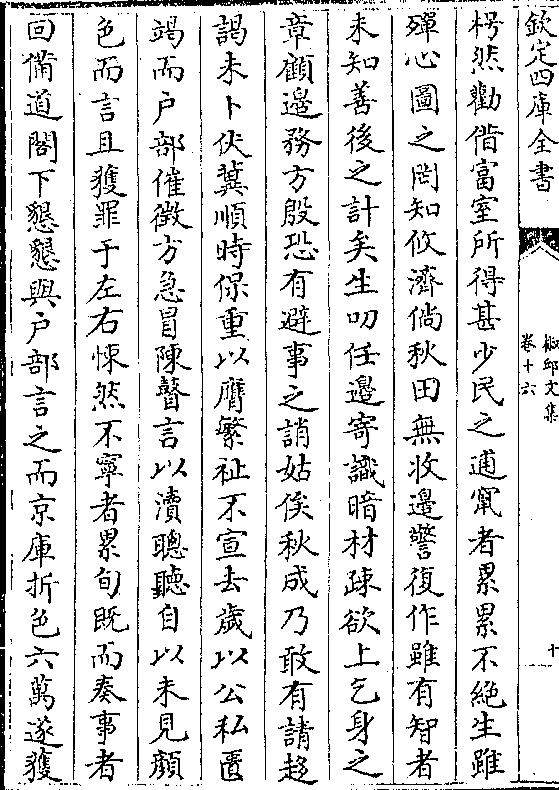 欽定四庫全書
卷十六
十
枵然勸借富室所得甚少民之逋竄者累累不絶生雖
殫心圖之罔知攸濟倘秋田無收邊警復作雖有智者
未知善後之計矣生叨任邊寄識暗材疎欲上乞身之
章顧邊務方殷恐有避事之誚姑俟秋成乃敢有請趨
謁未卜伏冀順時保重以膺繁祉不宣去歲以公私匱
竭而户部催徴方急冒陳瞽言以瀆聰聽自以未見顔
色而言且獲罪于左右悚然不寧者累旬既而奏事者
回備道閣下懇懇與户部言之而京庫折色六萬遂獲